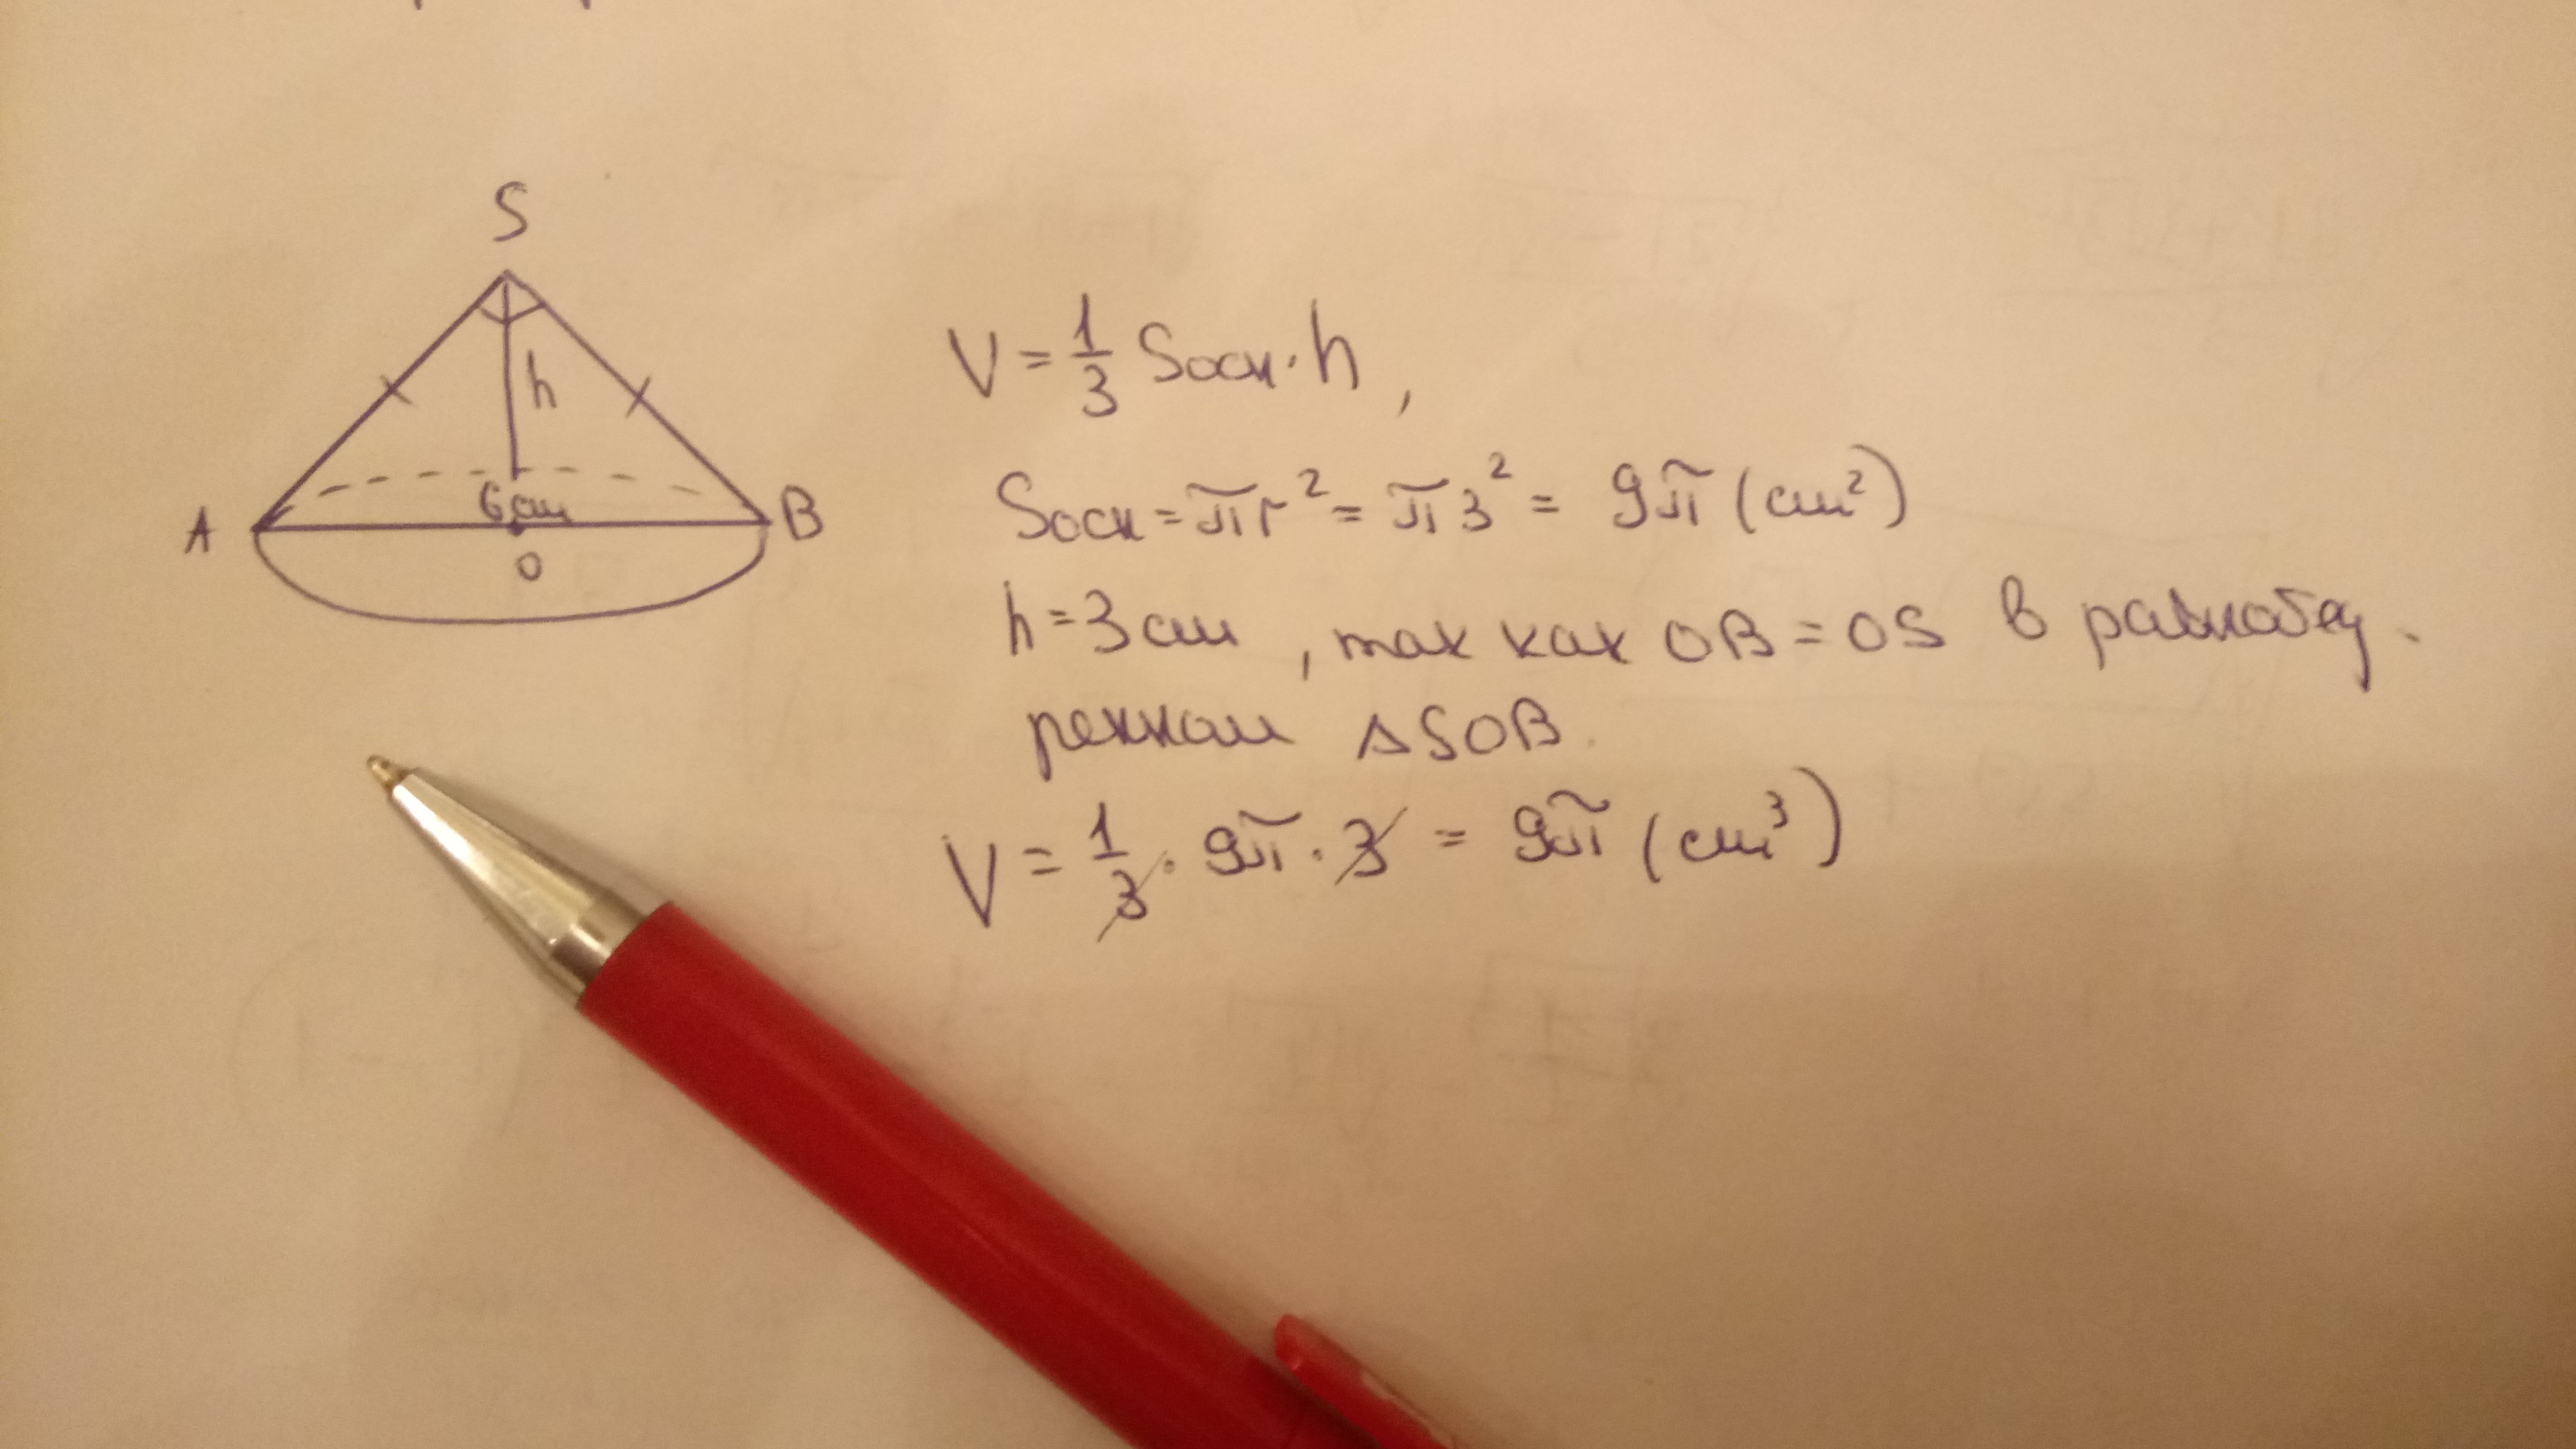 S
h
6 см
A
B
O
V = 1/3 Sосн · h ,
Sосн = πr² = π3² = 9π (см²)
h = 3 см , так как OB = OS в равнобед.
ренном ΔSOB.
V = 1/3 · 9π · 3 = 9π (см³)